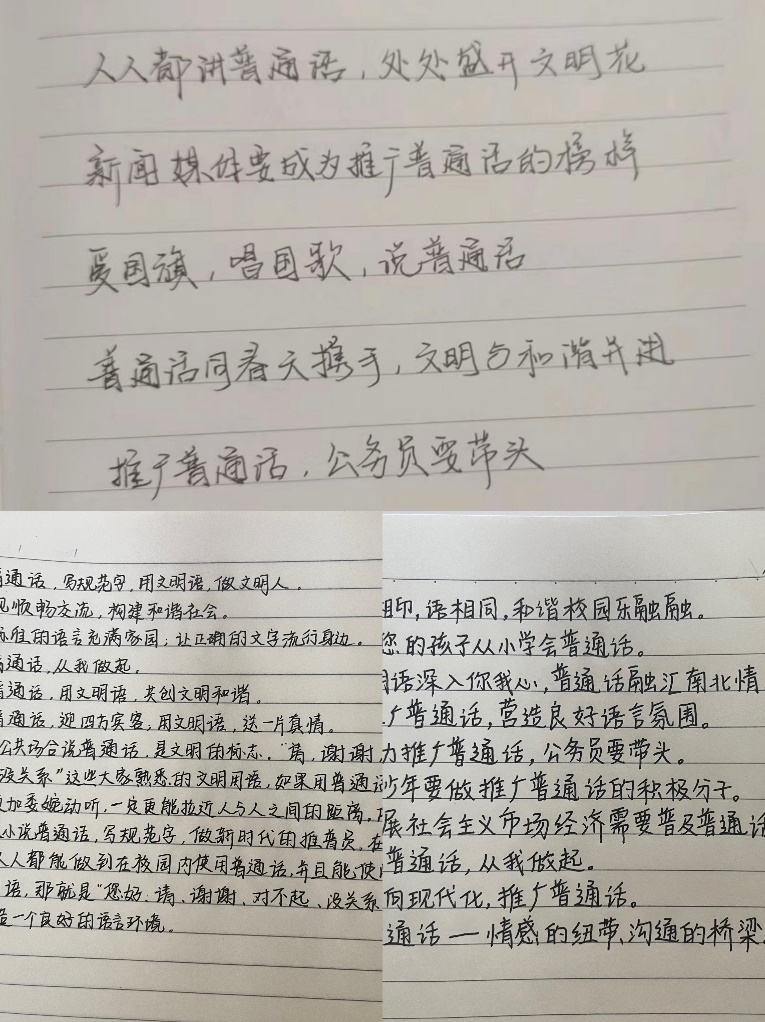 人人都讲普通话，处处盛开文明花
新闻媒体要成为推广普通话的榜样
爱国旗，唱国歌，说普通话
普通话同春天携手，文明与和谐并进
推广普通话，公务员要带头
通话，写规范字，用文明语，做文明人。
顺畅交流，构建和谐社会。
的语言充满家园；让正确的文字流行身边。
通话，从我做起。
通话，用文明语，共创文明和谐。
通话，迎四方宾客，用文明语，送一片真情。
公共场合说普通话，是文明的标志。“请，谢谢，
没关系”这些大家熟悉的文明用语，如果用普通话
加委婉动听，一定更能拉近人与人之间的距离，
小说普通话，写规范字，做新时代的推普员，在
人人都能做到在校园内使用普通话，并且能使用
语，那就是“您好、请、谢谢、对不起、没关系
造一个良好的语言环境。
相印，语相同，和谐校园乐融融。
您的孩子从小学会普通话。
语深入你我心，普通话融汇南北情
广普通话，营造良好语言氛围。
力推广普通话，公务员要带头。
少年要做推广普通话的积极分子。
展社会主义市场经济需要普及普通话
普通话，从我做起。
向现代化，推广普通话。
通话——情感的纽带、沟通的桥梁